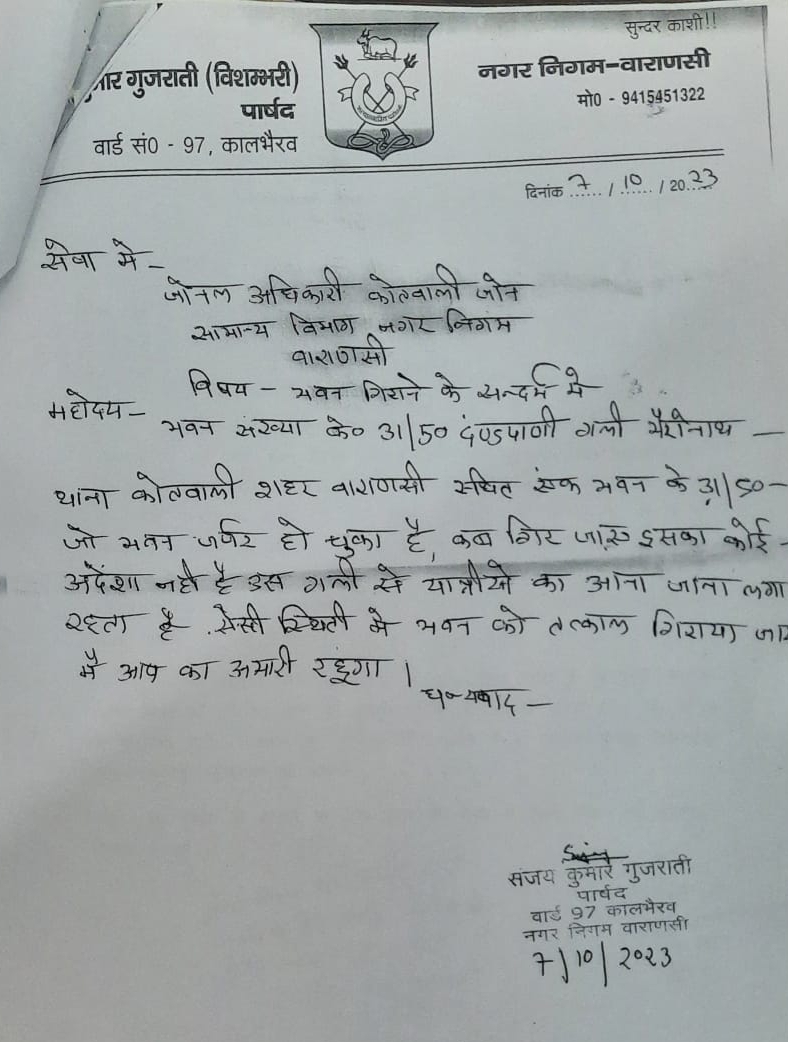 सुन्दर काशी!!
मार गुजराती (विशम्भरी)
पार्षद
वार्ड सं0 - 97, कालभैरव
नगर निगम-वाराणसी
मो0 - 9415451322
दिनांक 7 / 10 / 2023
सेवा मे -
जोनल अधिकारी कोतवाली जोन
सामान्य विभाग नगर निगम
वाराणसी
विषय - भवन गिराने के सन्दर्भ मे
महोदय -
भवन संख्या के० 31/50 दंण्डपाणी गली भैरोनाथ -
थाना कोतवाली शहर वाराणसी स्थित एंक भवन के 31/50 -
जो भवन जर्जर हो चुका है, कब गिर जाए इसका कोई -
अदेंशा नही है इस गली से यात्रीयो का आना जाना लगा
रहता है. ऐसी स्थिती मे भवन को तत्काल गिराया जाए
मै आप का अभारी रहूगा |
धन्यबाद -
संजय कुमार गुजराती
पार्षद
वार्ड 97 कालभैरव
नगर निगम वाराणसी
7/10/2023